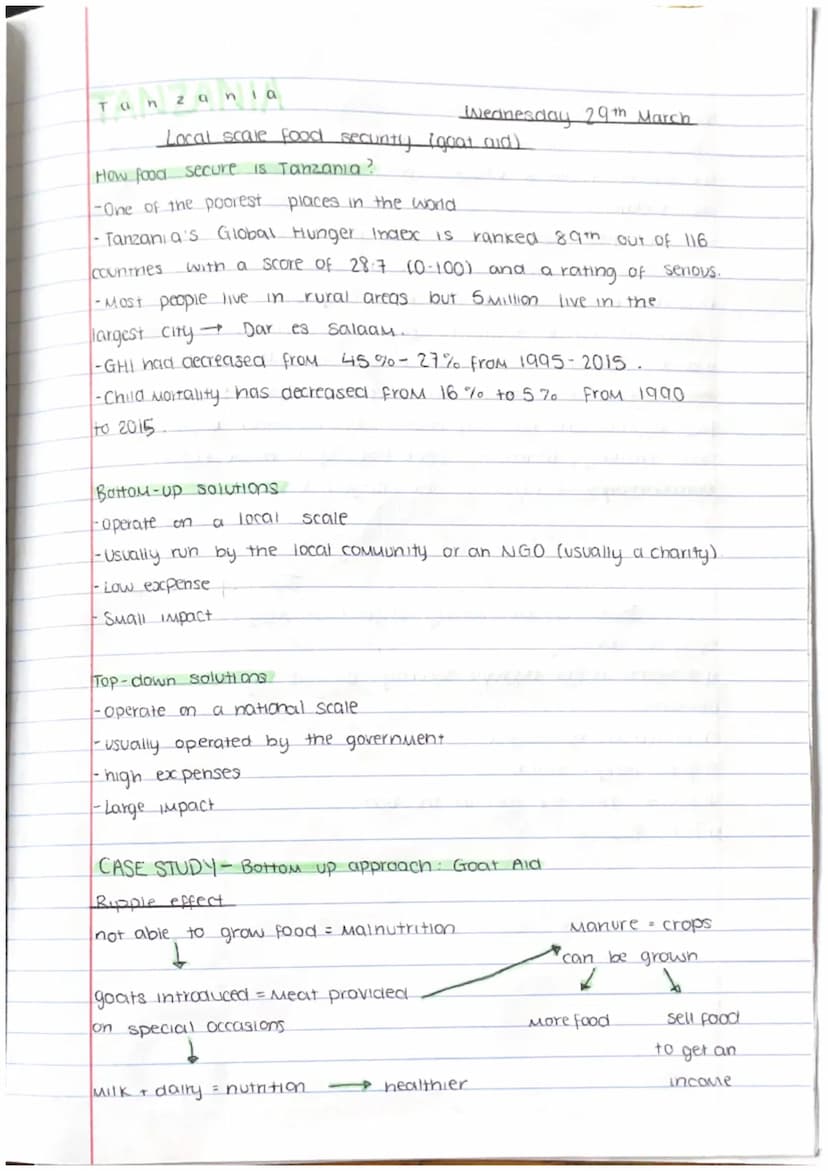 TANZANIA
Tanzania
Wednesday 29th March
Local scale food security (goat aid)
How food secure is Tanzania?
-One of the poorest places in the world
- Tanzania's Global Hunger Index is ranked 89th out of 116
countries with a score of 28.7 (0-100) and a rating of serious.
-Most people live in rural areas but 5 million live in the
largest city → Dar es Salaam.
-GHI had decreased from 45%-27% from 1995-2015.
-Child mortality has decreased from 16% to 5% from 1990
to 2015.
Bottom-up solutions
-operate on a local scale
-usually run by the local community or an NGO (usually a charity)
-Low expense
-Small impact
Top-down solutions
-operate on a national scale
-usually operated by the government
-high expenses
-Large impact
CASE STUDY- Bottom up approach: Goat Aid
Ripple effect
not able to grow food = malnutrition
↓
goats introduced = meat provided
on special occasions
↓
milk + dairy = nutrition → healthier
manure = crops
can be grown
more food
sell food
to get an
income